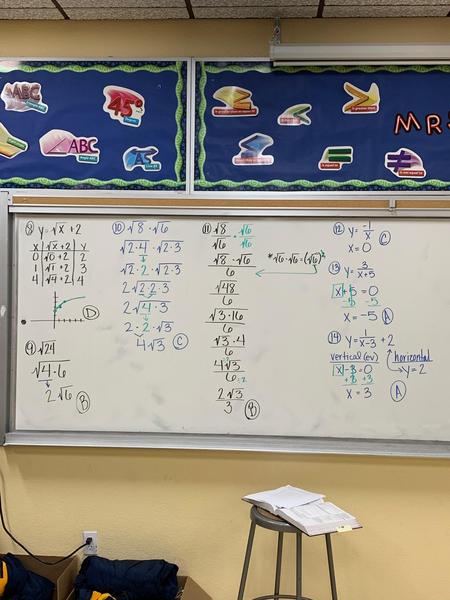 AABC
45°
ABC
MRS
⑧ y = √x + 2
x | √x + 2 | y
0 | √0 + 2 | 2
1 | √1 + 2 | 3
4 | √4 + 2 | 4
Ⓓ
⑨ √24
√4·6
2√6
Ⓑ
⑩ √8 · √6
√2·4 · √2·3
√2·2 · √2·3
2√2·2·3
2√4·3
2·2·√3
4√3 Ⓒ
⑪ √8/√6 · √6/√6
*√6·√6 = (√6)²
√8·√6/6
√48/6
√3·16/6
√3·4/6
4√3/6 ÷2 ÷2
2√3/3 Ⓑ
⑫ y = -1/x Ⓒ
x = 0
⑬ y = 3/(x+5)
x + 5 = 0
-5 -5
x = -5 Ⓐ
⑭ y = 1/(x-3) + 2
vertical (ev)
horizontal
y = 2
x - 3 = 0
+3 +3
x = 3 Ⓐ